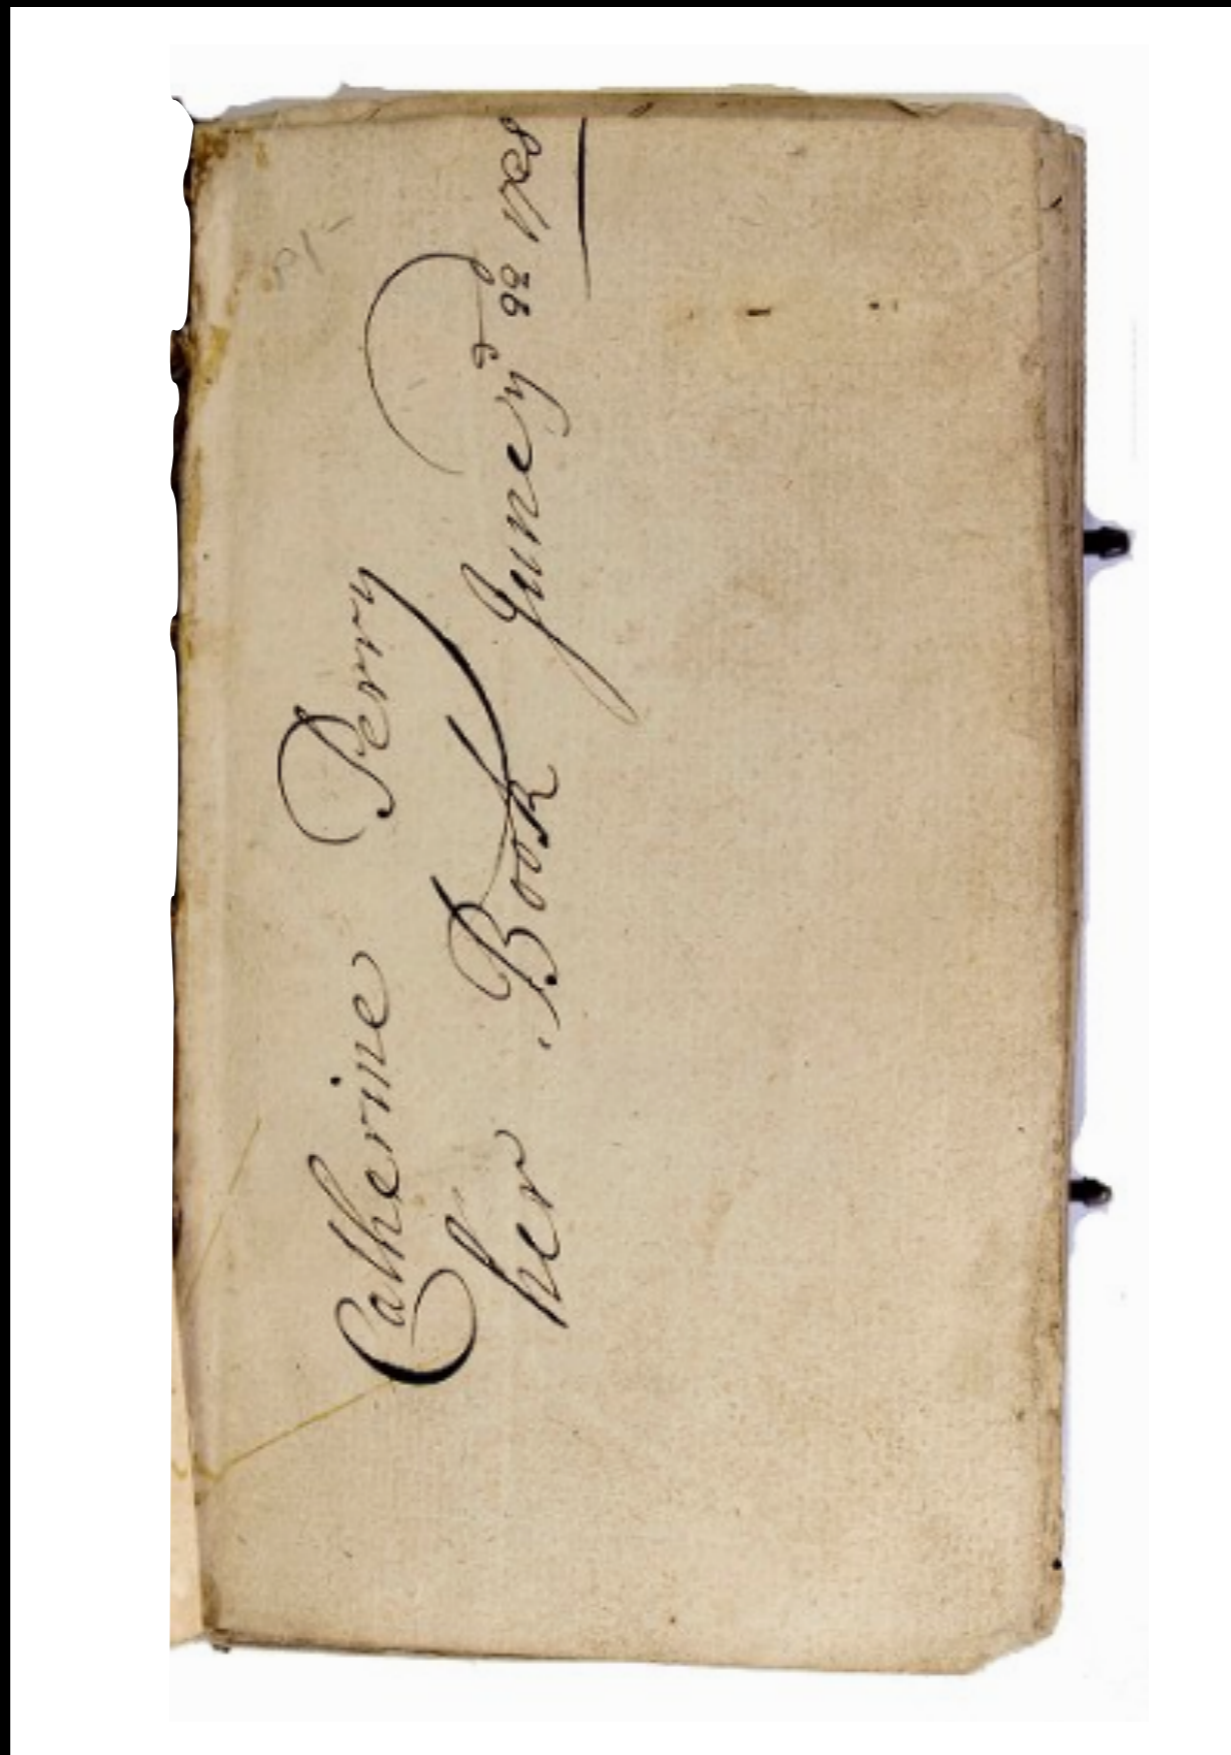 Catherine Perry
her Book June yᵉ